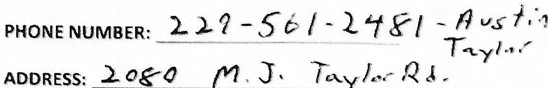 PHONE NUMBER: 229-561-2481 - Austin
Taylor
ADDRESS: 2080 M.J. Taylor Rd.